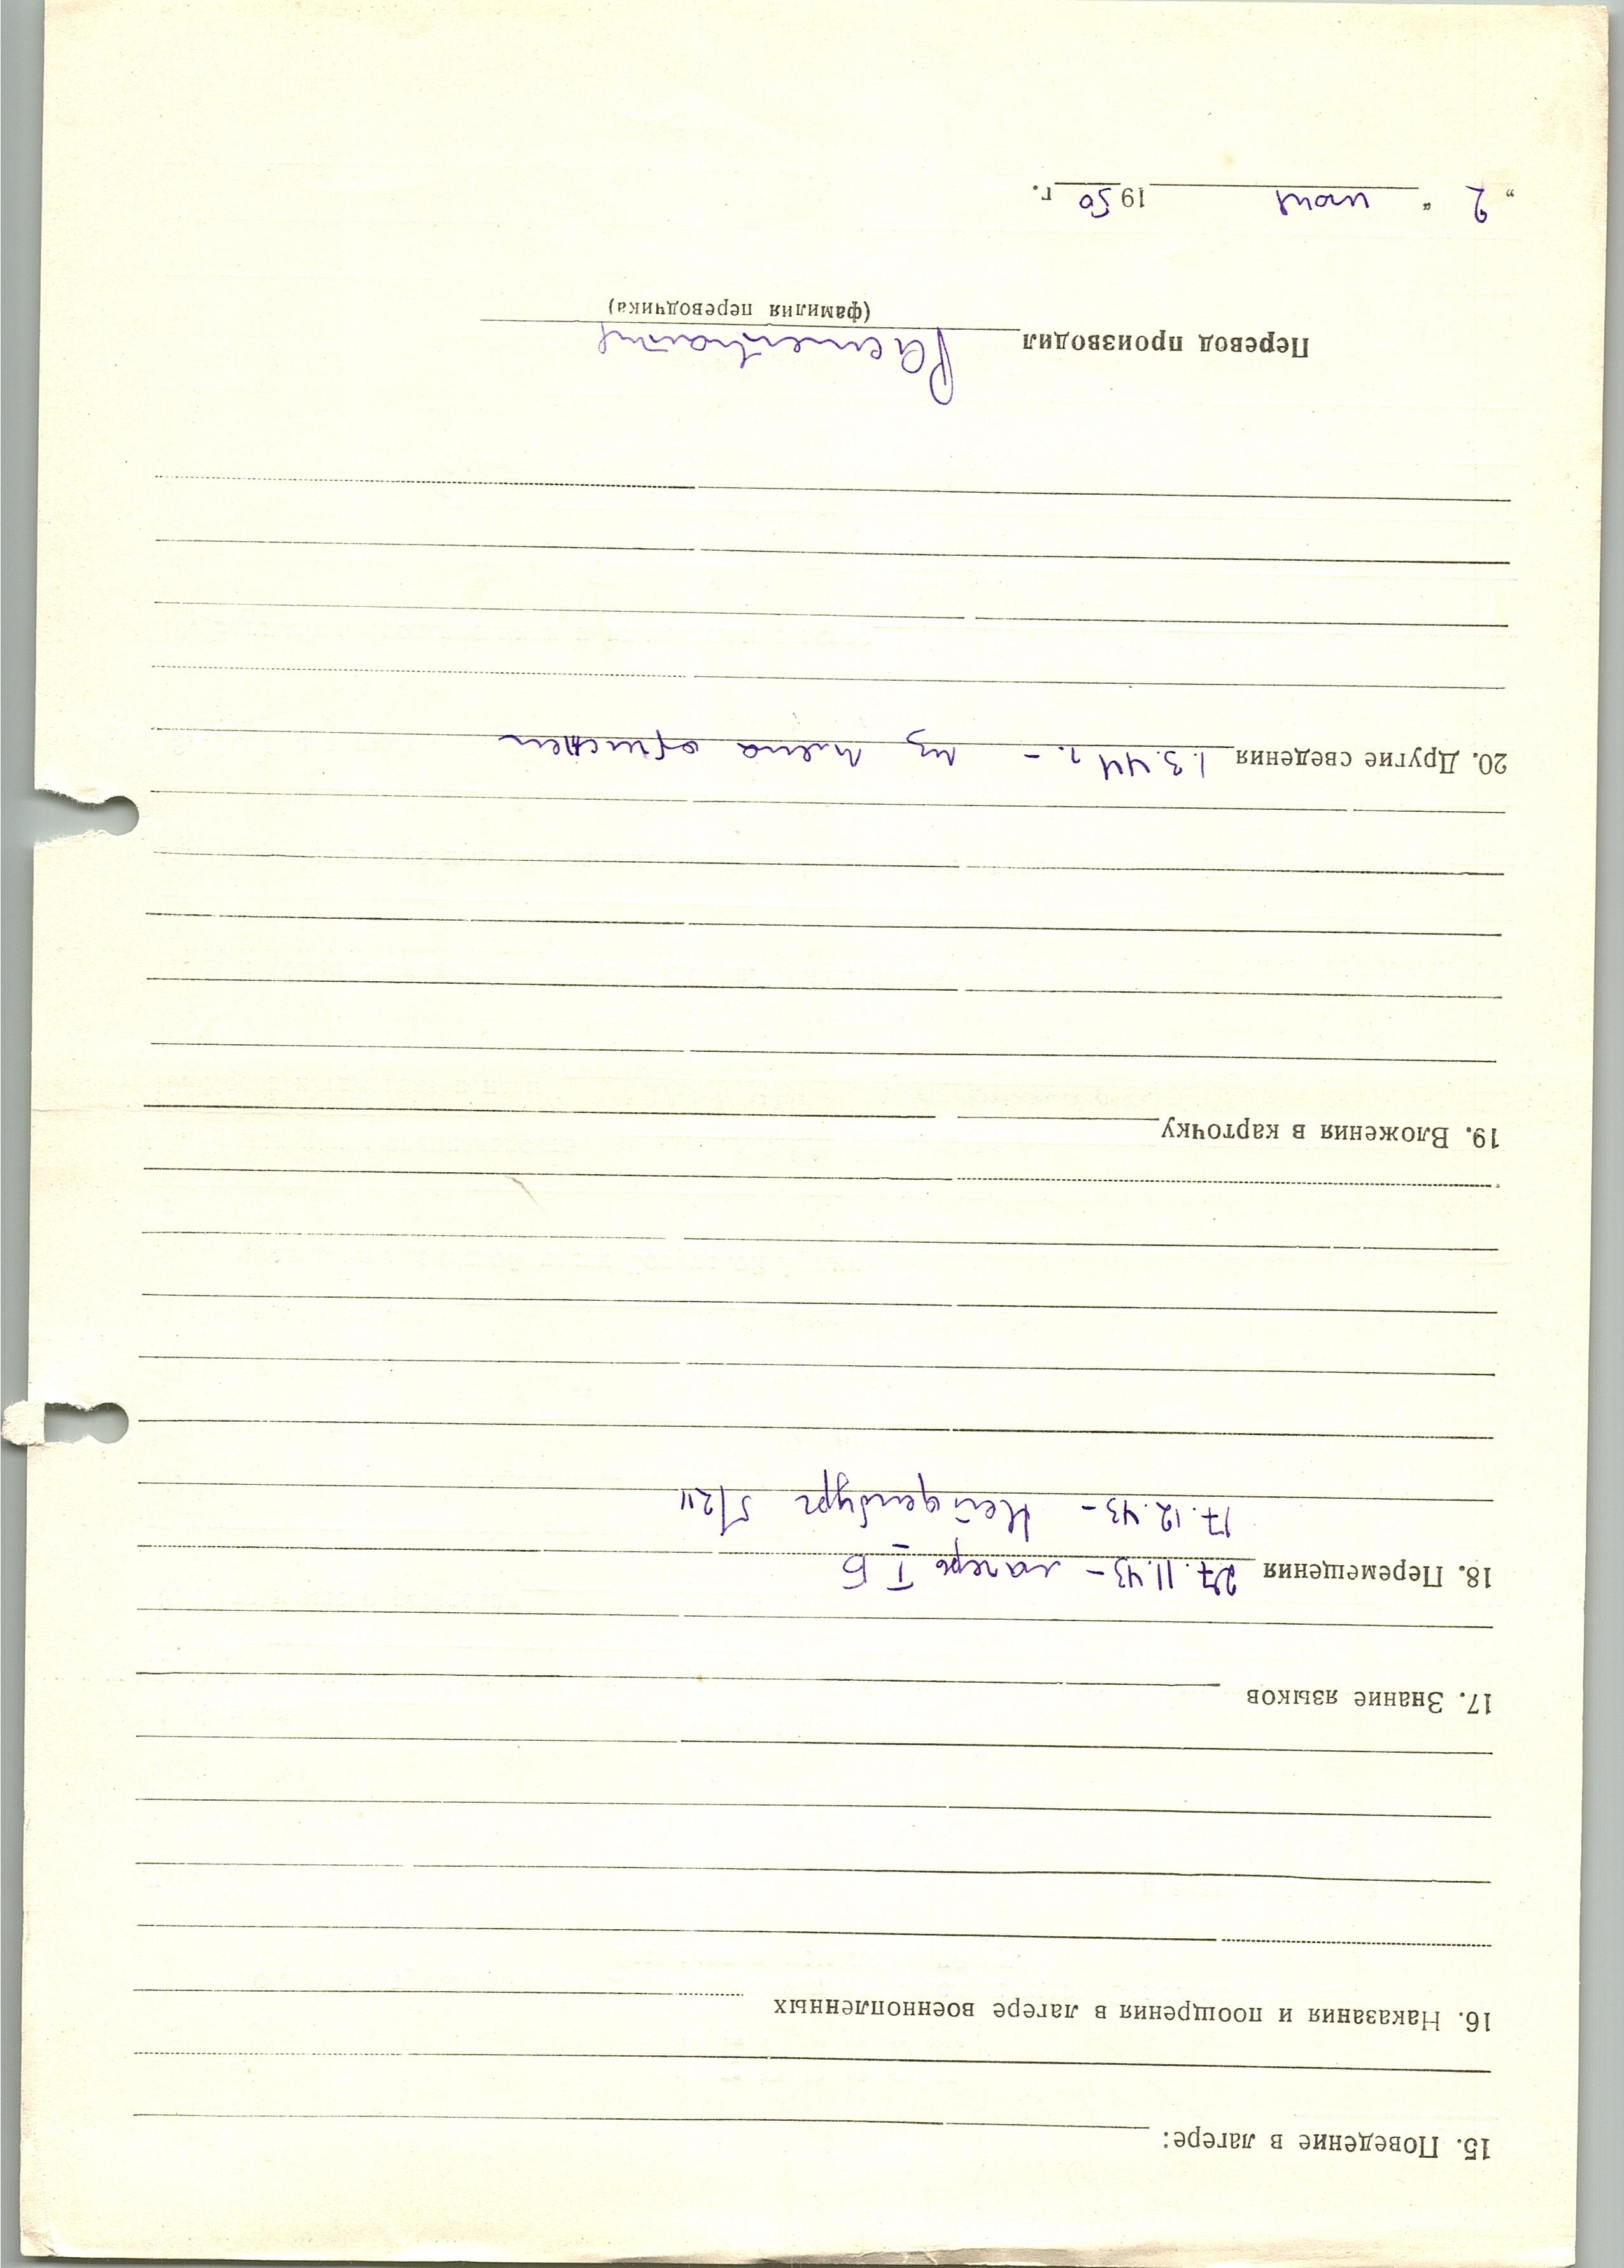 15. Поведение в лагере:
16. Наказания и поощрения в лагере военнопленных
17. Знание языков
18. Перемещения 27.11.43 – лагерь I Б
17.12.43 – Нейденбург 5/211
19. Вложения в карточку
20. Другие сведения 1.3.44 г. – из плена отпущен
Перевод производил
(фамилия переводчика)
„ 2 “ июня 1950 г.